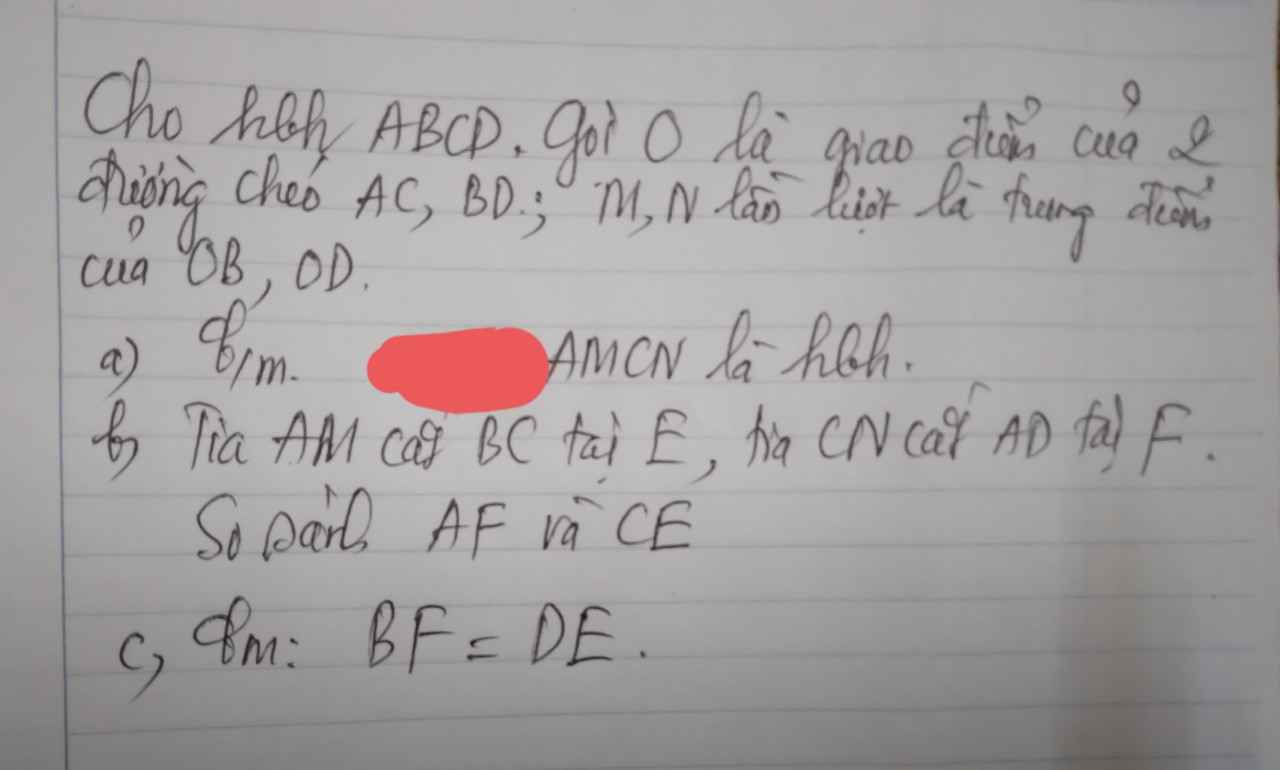 Cho hbh ABCD. Gọi O là giao điểm của 2
đường chéo AC, BD.; M, N lần lượt là trung điểm
của OB, OD.
a) C/m. AMCN là hbh.
b, Tia AM cắt BC tại E, tia CN cắt AD tại F.
So sánh AF và CE
c, Cm: BF = DE.